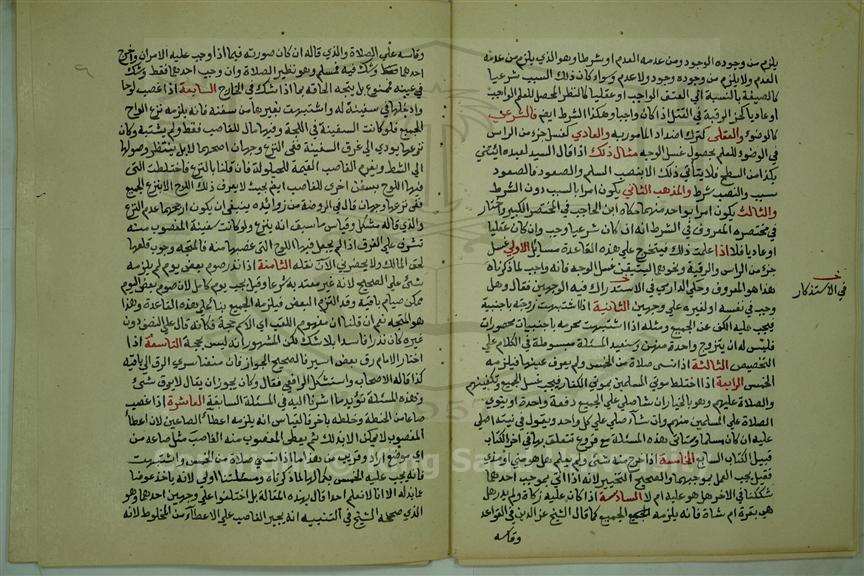 يلزم من وجوده الوجود ومن عدمه العدم او شرطا وهو الذي يلزم من عدمه
العدم ولا يلزم من وجوده وجود ولا عدم وسواء كان ذلك السبب شرعيا
كالصيغة بالنسبة الى العتق الواجب او عقليا كالنظر المحصل للعلم الواجب
او عاديا كحز الرقبة في القتل اذا كان واجبا وهكذا الشرط ايضا فالشرعي
كالوضوء والعقلي كترك اضداد المأمور به والعادي كغسل جزء من الراس
في الوضوء للعلم بحصول غسل الوجه مثال ذلك اذا قال السيد لعبده ايتني
بكذا من السطح فلا يتأتى ذلك الا بنصب السلم والصعود فالصعود
سبب والنصب شرط والمذهب الثاني يكون امرا بالسبب دون الشرط
والثالث لا يكون امرا بواحد منهما حكاه ابن الحاجب في المختصر الكبير واختار
في مختصره المعروف في الشرط انه ان كان شرعيا وجب وان كان عقليا
او عاديا فلا اذا علمت ذلك فيتخرج على هذه القاعدة مسائل الاولى غسل
جزء من الراس والرقبة ونحوهما ليتيقن غسل الوجه فانه واجب لما ذكرناه
هذا هو المعروف وحكى الدارمي في الاستدراك فيه الوجهين فقال وهل
وجب في نفسه او لغيره على وجهين الثانية اذا اشتبهت زوجته باجنبية
فيجب عليه الكف عن الجميع ومثله اذا اشتبهت محرمه باجنبيات محصورات
فليس له ان يتزوج واحدة منهن وسنعيد المسئلة مبسوطة في الكلام على
التخصيص الثالثة اذا نسي صلاة من الخمس ولم يعرف عينها فيلزمه
الخمس الرابعة اذا اختلط موتى المسلمين بموتى الكفار فيجب غسل الجميع وتكفينهم
والصلاة عليهم وهو بالخيار ان شا صلى على الجميع دفعة واحدة او ينوي
الصلاة على المسلمين منهم وان شا صلى على كل واحد ويقول في نيته اصلي
عليه ان كان مسلما وستاتي هذه المسئلة مع فروع تتعلق بها في اخر الكتاب
قبيل الكتاب السابع الخامسة اذا خرج منه شئ ولم يعلم هل هو مني او مذي
فقيل يجب العمل بموجبهما والصحيح التخيير لانه اذا اتى بموجب احدهما
شككنا في الاخر هل هو عليه ام لا السادسة اذا كان عليه زكاة ولم يدر هل
هي بقرة ام شاة فانه يلزمه الجميع كما قال الشيخ عز الدين في القواعد
وقاسه
في الاستذكار
وقاسه على الصلاة والذي قاله ان كان صورته فيما اذا وجب عليه الامران واخرج
احدهما وشك فيه فمسلم وهو نظير الصلاة وان وجب احدهما فقط وشك
في عينه فممنوع بل يتجه الحاقه بما اذا شك في الخارج السابعة اذا غصب لوحا
وادخلها في سفينة له واشتبهت بغيرها من سفنه فانه يلزمه نزع الواح
الجميع فلو كانت السفينة في اللجة وفيها مال للغاصب فقط ولم يشتبه وكان
نزعها يودي الى غرق السفينة ففي النزع وجهان اصحهما لا بل ينتظر وصولها
الى الشط ويغرم الغاصب القيمة للحيلولة فان قلنا بالنزع فاختلطت التي
فيها اللوح بسفن اخرى للغاصب ايضا بحيث لا يعرف ذلك اللوح الا بنزع الجميع
ففي نزعها وجهان قال في الروضة من زوائده ينبغي ان يكون ارجحهما عدم النزع
والذي قاله مشكل وقياس ما سبق انه ينزع ولو كانت سفينة المغصوب منه
تشرف على الغرق اذا لم يجعل فيها اللوح التي غصبها منه فالمتجه وجوب قلعها
لحق المالك ولا يحضرني الآن نقله الثامنة اذا نذر صوم بعض يوم لم يلزمه
شئ على الصحيح لانه غير معتد به شرعا وقيل يجب يوم كامل لان صوم بعض اليوم
ممكن صيام باقيه وقد التزم البعض فيلزمه الجميع بناء على هذه القاعدة وهذا
هو المتجه نعم ان قلنا ان مفهوم اللقب اي الاسم حجة فكانه قال على النصف دون
غيره كان نذرا فاسدا بلا شك لكن المشهور انه ليس بحجة التاسعة اذا
اختار الامام رق بعض اسير فالصحيح الجواز فان منعنا سرى الرق الى باقيه
كذا قاله الاصحاب واستشكل الرافعي فقال وكان يجوز ان يقال لا يرق شئ
وهذه المسئلة تؤيد ما اشرنا اليه في المسئلة السابقة العاشرة اذا غصب
صاعا من الحنطة وخلطه باخر فالقياس انه يلزمه اعطاء الصاعين لان اعطاء
المغصوب لا يمكن الا بذلك ثم يعطى المغصوب منه الغاصب مثل صاعه من
اي موضع اراد وقريب من هذا ما اذا نسي صلاة من الخمس واشتبهت
فانه يجب عليه الخمس بكمالها لما ذكرناه ومسئلتنا اولى لانه ياخذ عوضا
عما بذله الا انا لا نعلم احدا قال بهذه المقالة بل اختلفوا على وجهين احدهما وهو
الذي صححه الشيخ في التنبيه انه يجبر الغاصب على الاعطاء من المخلوط لانه